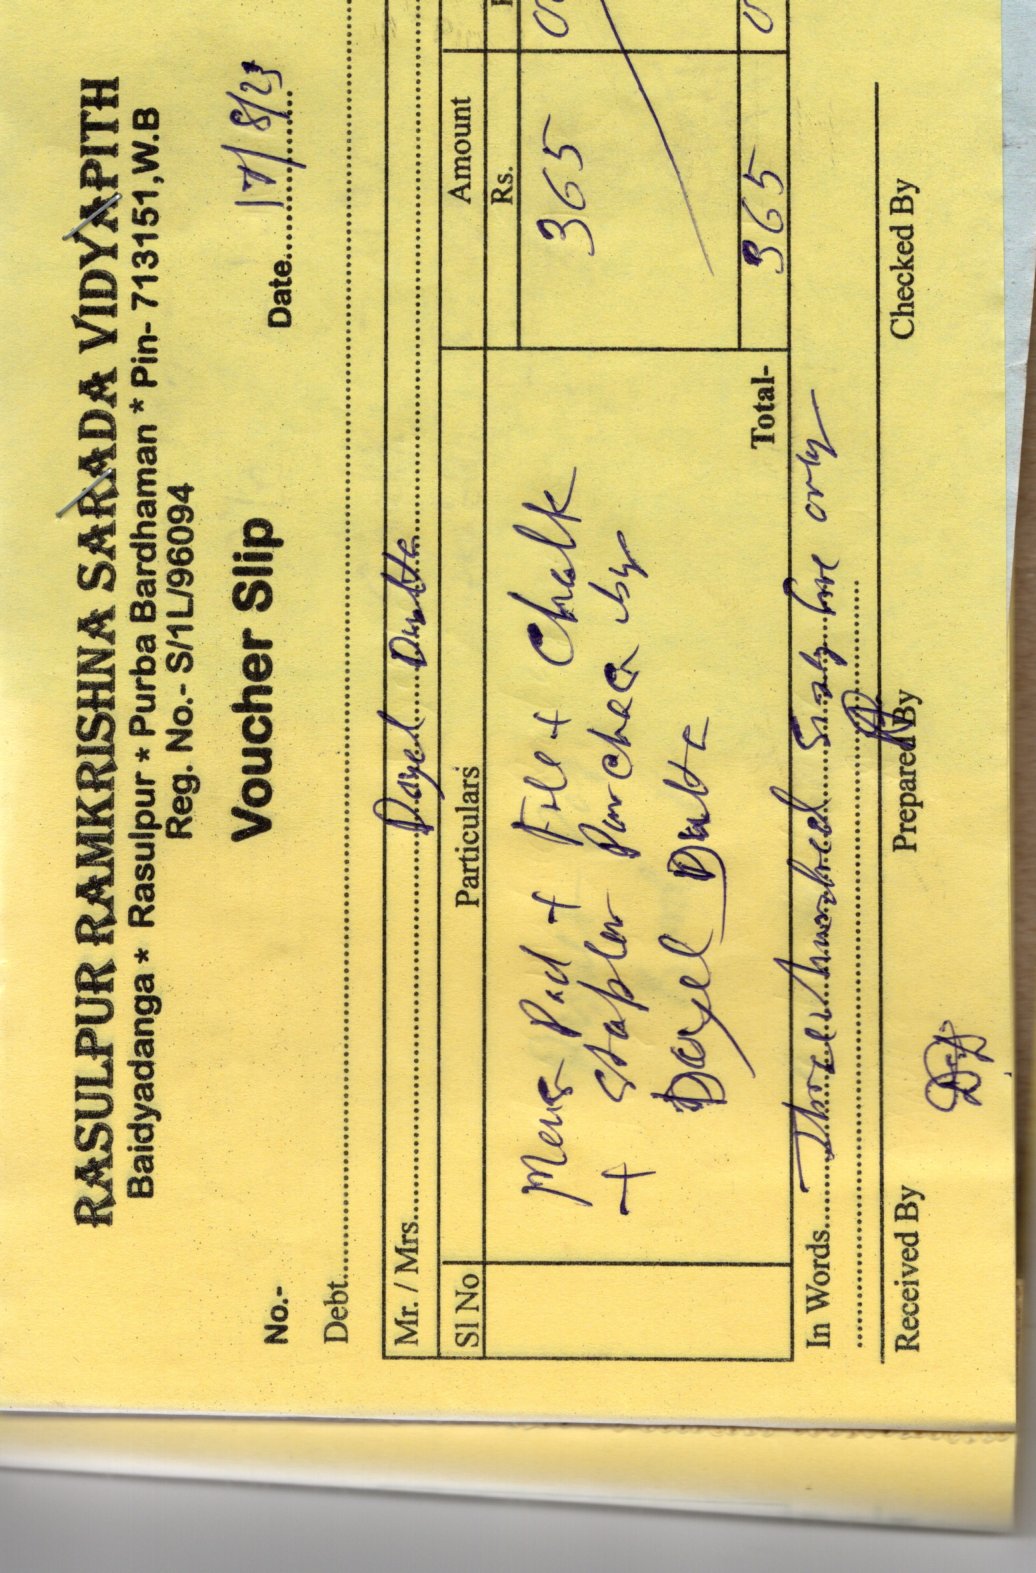 RASULPUR RAMKRISHNA SARADA VIDYAPITH
Baidyadanga * Rasulpur * Purba Bardhaman * Pin- 713151,W.B
Reg. No.- S/1L/96094
Voucher Slip
No.- Date 17/8/23
Debt
Mr. / Mrs. Payel Dutta
Sl No Particulars Amount
Rs.
Pad + File + Chalk 365
+ stapler Purchase by
Payel Dutta
Total- 365
In Words Three Hundred Sixty five only
Received By Prepared By Checked By